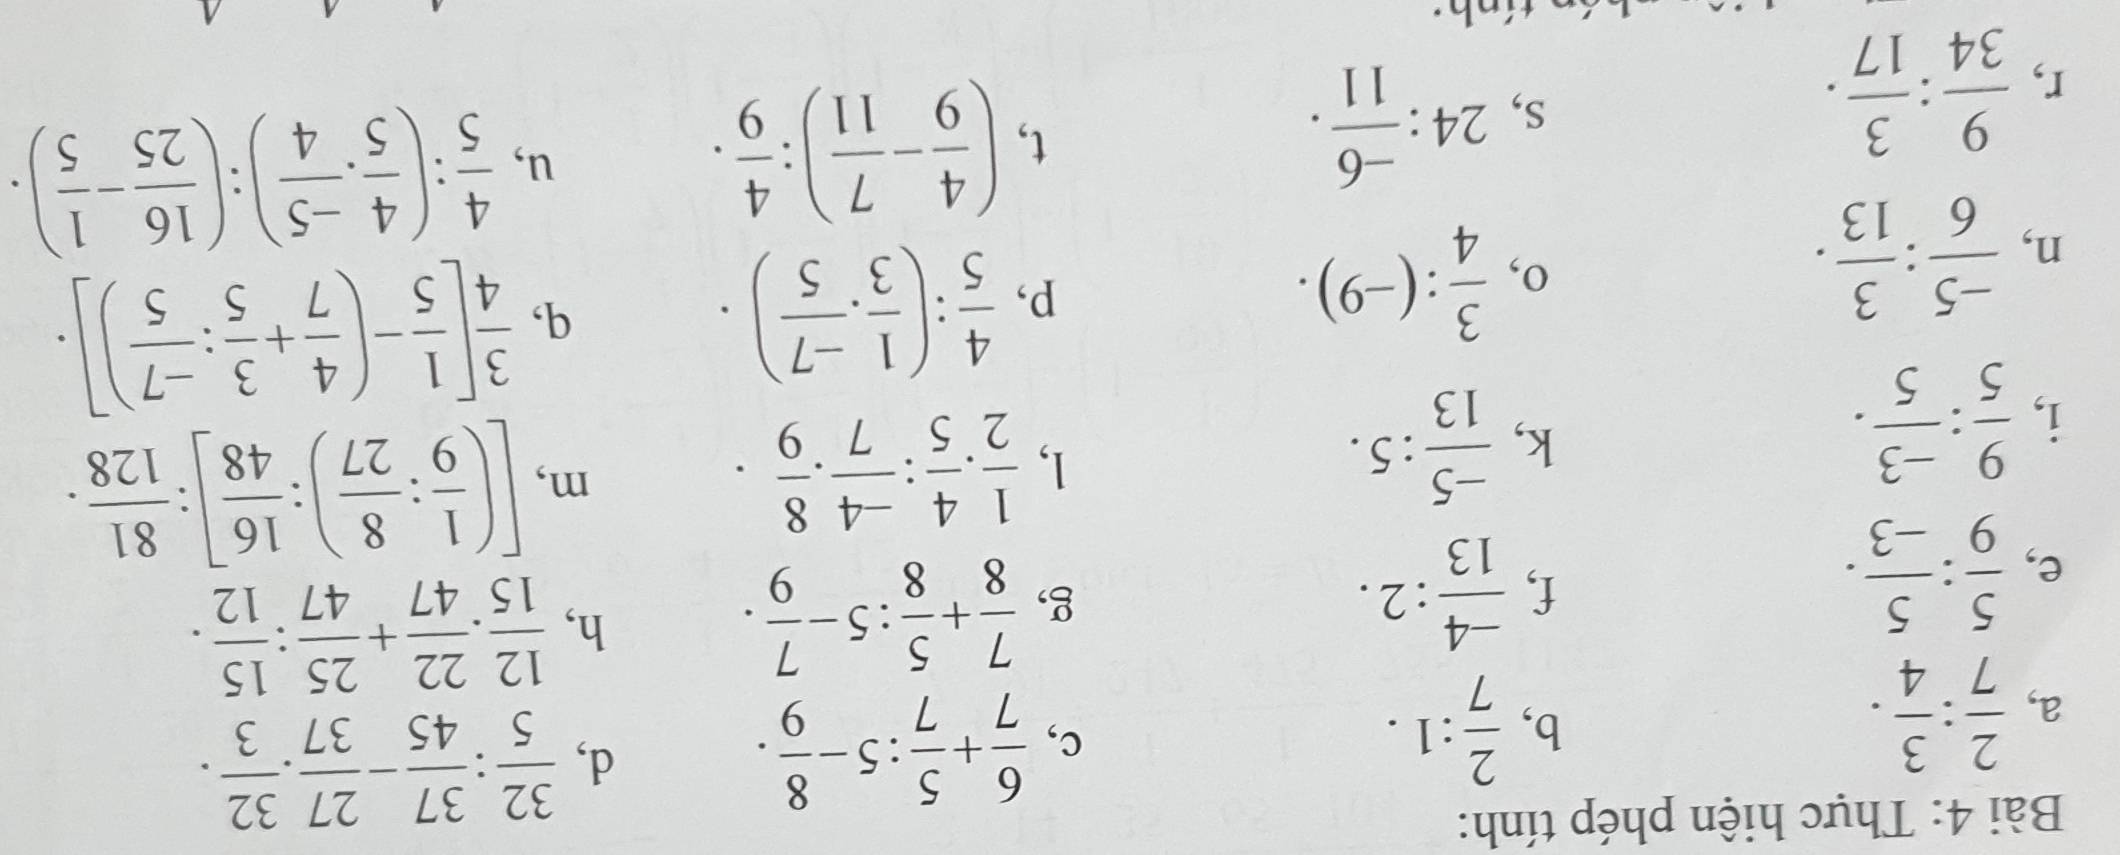 Bài 4: Thực hiện phép tính:
a, 2/7 : 3/4. b, 2/7 : 1. c, 6/7 + 5/7 : 5 − 8/9. d, 32/5 : 37/45 − 27/37 . 32/3.
e, 5/9 : 5/−3. f, −4/13 : 2. g, 7/8 + 5/8 : 5 − 7/9. h, 12/15 . 22/47 + 25/47 : 15/12.
i, 9/5 : −3/5. k, −5/13 : 5. l, 1/2 . 4/5 : −4/7 . 8/9. m, [(1/9 : 8/27) : 16/48] : 81/128.
n, −5/6 : 3/13. o, 3/4 : (−9). p, 4/5 : (1/3 . −7/5). q, 3/4 [1/5 − (4/7 + 3/5 : −7/5)].
r, 9/34 : 3/17. s, 24 : −6/11. t, (4/9 − 7/11) : 4/9. u, 4/5 : (4/5 . −5/4) : (16/25 − 1/5).
phép tính: